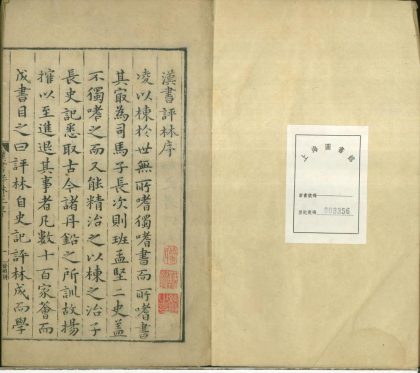 漢書評林序
凌以棟於世無所嗜獨嗜書而所嗜書
其冣為司馬子長次則班孟堅二史蓋
不獨嗜之而又能精治之以棟之治子
長史記悉取古今諸丹鉛之所訓故揚
搉以至進退其事者凡數十百家薈而
成書目之曰評林自史記評林成而學
上海圖書館